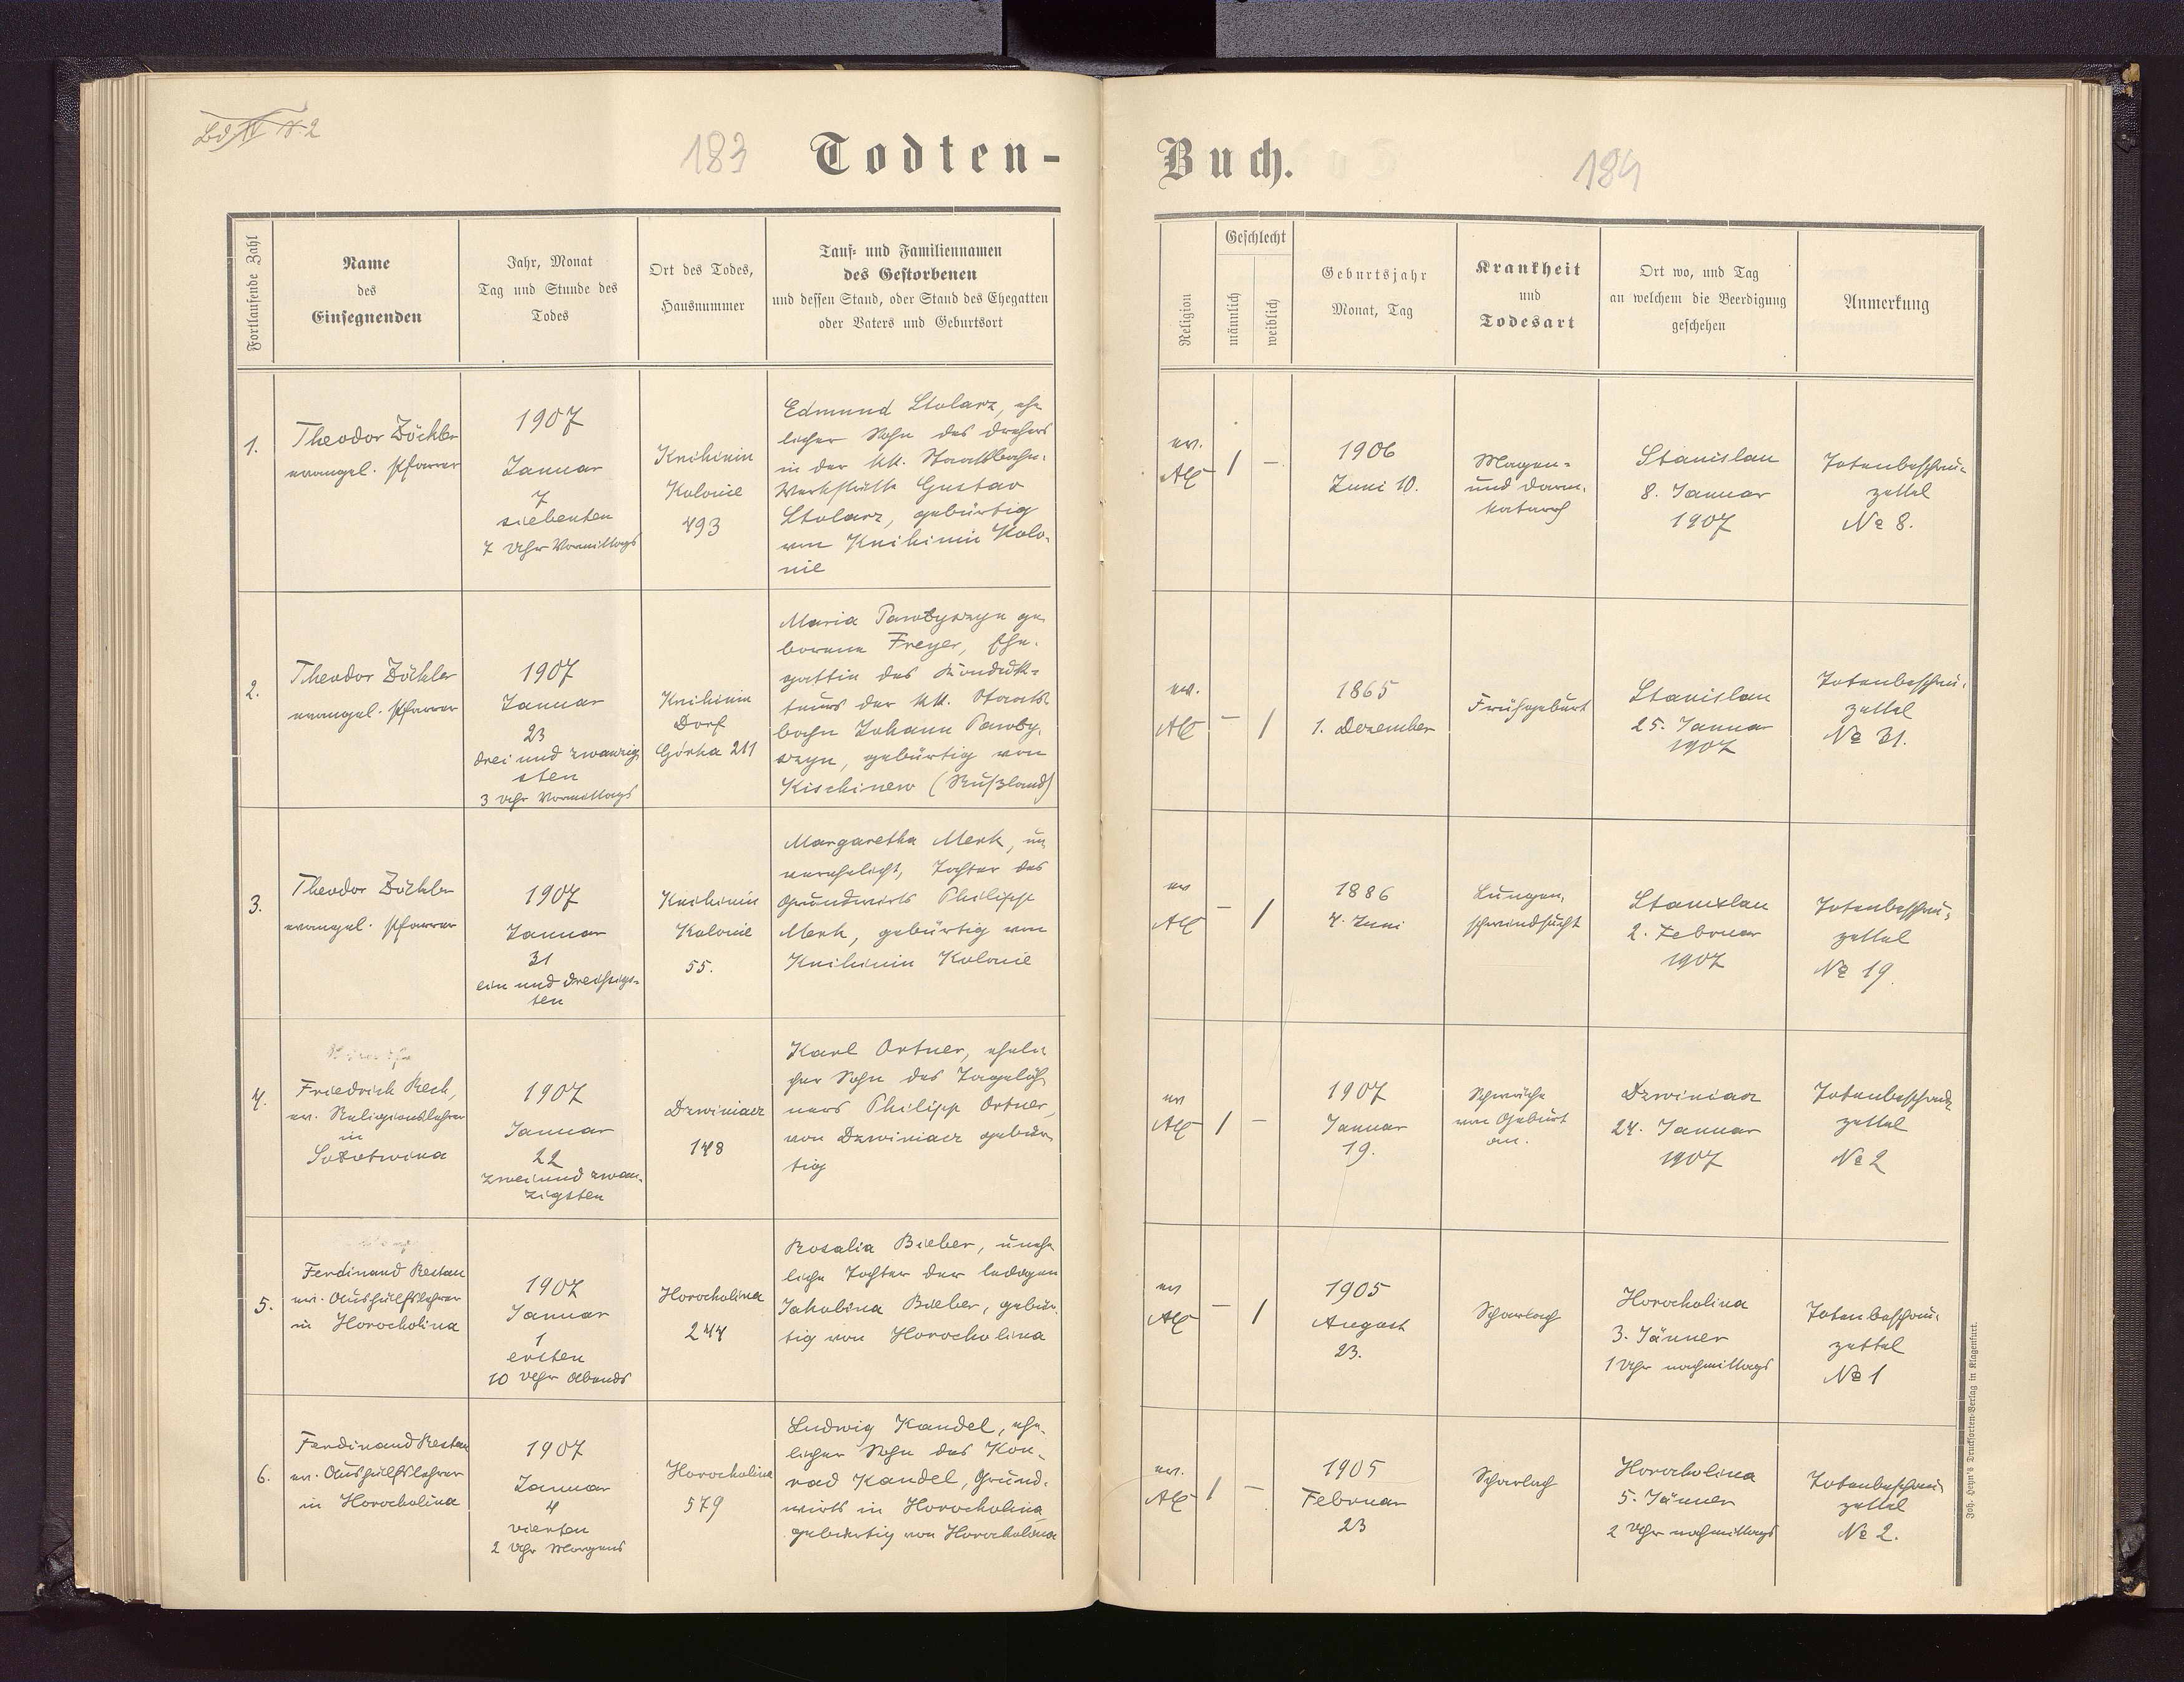 Bd. IV N. 2
183
Todten-
Buch.
184
Fortlaufende Zahl
Name
des
Einsegnenden
Jahr, Monat
Tag und Stunde des
Todes
Ort des Todes,
Hausnummer
Tauf- und Familiennamen
des Gestorbenen
und dessen Stand, oder Stand des Ehegatten
oder Vaters und Geburtsort
Religion
Geschlecht
männlich
weiblich
Geburtsjahr
Monat, Tag
Krankheit
und
Todesart
Ort wo, und Tag
an welchem die Beerdigung
geschehen
Anmerkung
1.
Theodor Zöckler
evangel. Pfarrer
1907
Januar
7
siebenten
7 Uhr Vormittags
Knihinin
Kolonie
493
Edmund Stolarz, ehe
licher Sohn des Drehers
in der kk. Staatsbahn-
Werkstätte Gustav
Stolarz, gebürtig
von Knihinin Kolo-
nie
ev.
AC
1
–
1906
Juni 10.
Magen-
und Darm-
katarrh
Stanislau
8. Januar
1907
Totenbeschau-
zettel
№ 8.
2.
Theodor Zöckler
evangel. Pfarrer
1907
Januar
23
drei und zwanzig
sten
3 Uhr Vormittags
Knihinin
Dorf
Górka 211
Maria ge
borene Freyer, Ehe-
gattin des Konduk-
teurs der kk. Staats
bahn Johann
gebürtig von
Kischinew (Rußland)
ev.
AC
–
1
1865
1. Dezember
Frühgeburt
Stanislau
25. Januar
1907
Totenbeschau-
zettel
№ 31.
3.
Theodor Zöckler
evangel. Pfarrer
1907
Januar
31
ein und dreissigs-
ten
Knihinin
Kolonie
55.
Margaretha Merk, un
verehelicht, Tochter des
Grundwirts Philipp
Merk, gebürtig von
Knihinin Kolonie
ev
AC
–
1
1886
4. Juni
Lungen-
schwindsucht
Stanislau
2. Februar
1907
Totenbeschau-
zettel
№ 19.
4.
Friedrich Rech,
ev. Religionslehrer
in
Sołotwina
1907
Januar
22
zwei und zwan-
zigsten
Dzwiniacz
148
Karl Ortner, eheli
cher Sohn des Tagelöh
ners Philipp Ortner,
von Dzwiniacz gebür
tig
ev
AC
1
–
1907
Januar
19.
Schwäche
von Geburt
an.
Dzwiniacz
24. Januar
1907
Totenbeschau-
zettel
№ 2
5.
Ferdinand Restau
ev. Aushülfslehrer
in Horocholina
1907
Januar
1
ersten
10 Uhr Abends
Horocholina
244
Rosalia Bieber, unehe
liche Tochter der ledigen
Jakobina Bieber, gebür-
tig von Horocholina
ev
AC
–
1
1905
August
23.
Scharlach
Horocholina
3. Jänner
1 Uhr nachmittags
Totenbeschau-
zettel
№ 1
6.
Ferdinand Restau
ev. Aushülfslehrer
in Horocholina
1907
Januar
4
vierten
2 Uhr Morgens
Horocholina
579
Ludwig Kandel, ehe-
licher Sohn des Kon-
rad Kandel, Grund-
wirts in Horocholina,
gebürtig von Horocholina
ev.
AC
1
–
1905
Februar
23
Scharlach
Horocholina
5. Jänner
2 Uhr nachmittags
Totenbeschau-
zettel
№ 2.
Joh. Heyn's Drucksorten-Verlag in Klagenfurt.